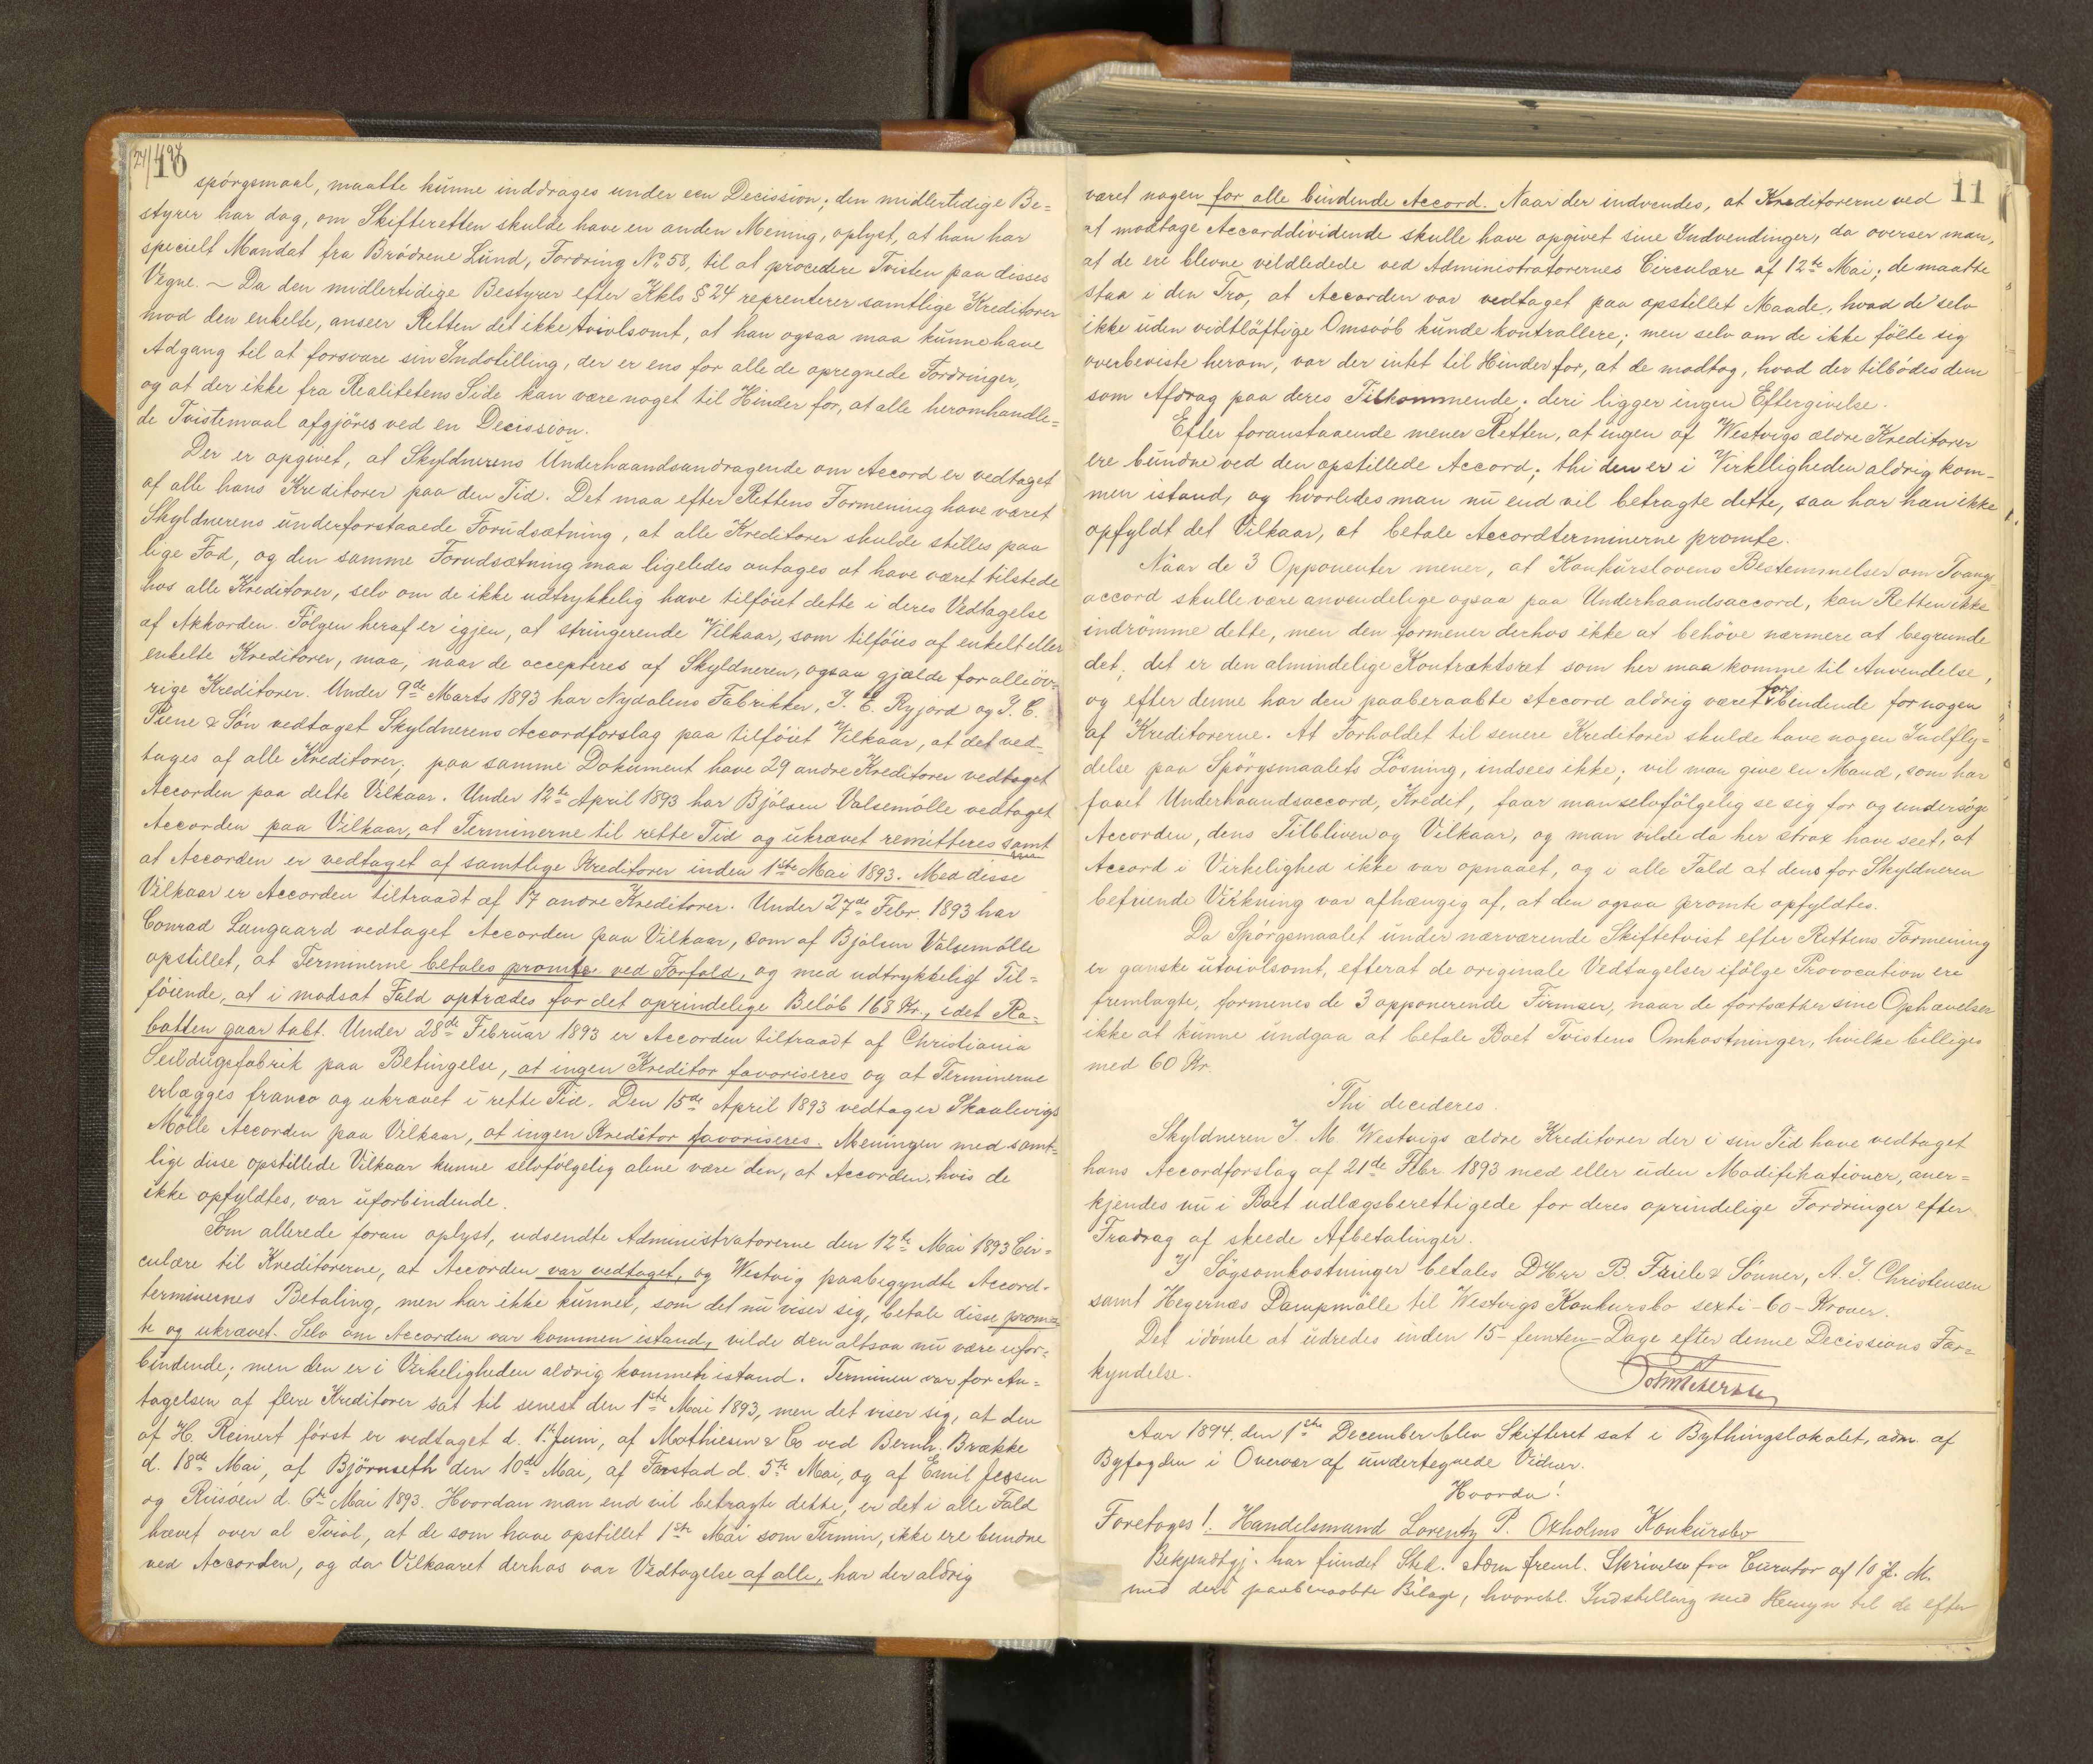 10
spórgsmaal, maatte kunne inddrages under een Decission; den midlertidige Be=
styrer har dog, om Skifteretten skulde have en anden Mening, oplyst, at han har
specielt Mandat fra Brödrene Lund, Fordring No 58, til at procedere Tvisten paa disses
Vegne. – Da den midlertidige Bestyrer efter Kkls § 24 reprenterer samtlige Kreditorer
mod den enkelte, anseer Retten det ikke tvivlsomt, at han ogsaa maa kunne have
Adgang til at forsvare sin Indstilling, der er ens for alle de opregnede Fordringer,
og at der ikke fra Realitetens Side kan være noget til Hinder for, at alle heromhandle=
de Tvistemaal afgjöres ved en Decission.
Der er opgivet, at Skyldnerens Underhaandsandragende om Accord er vedtaget
af alle hans Kreditorer paa den Tid. Det maa efter Rettens Formening have været
Skyldnerens underforstaaede Forudsætning, at alle Kreditorer skulde stilles paa
lige Fod, og den samme Forudsætning maa ligeledes antages at have været tilstede
hos alle Kreditorer, selv om de ikke udtrykkelig have tilföiet dette i deres Vedtagelse
af Akkorden. Fölgen heraf er igjen, at stringerende Vilkaar, som tilföies af enkelt eller
enkelte Kreditorer, maa, naar de accepteres af Skyldneren, ogsaa gjælde for alle öv=
rige Kreditorer. Under 9de Marts 1893 har Nydalens Fabrikker, J. E. Ryjord og J. C.
Piene & Sön vedtaget Skyldnerens Accordforslag paa tilföiet Vilkaar, at det ved=
tages af alle Kreditorer; paa samme Dokument have 29 andre Kreditorer vedtaget
Accorden paa dette Vilkaar. Under 12te April 1893 har Bjölsen Valsemölle vedtaget
Accorden paa Vilkaar, at Terminerne til rette Tid og ukrævet remitteres samt
at Accorden er vedtaget af samtlige Kreditorer inden 1ste Mai 1893. Med disse
Vilkaar er Accorden tiltraadt af 17 andre Kreditorer. Under 27de Febr. 1893 har
Conrad Langaard vedtaget Accorden paa Vilkaar, som af Bjölsen Valsemölle
opstillet, at Terminerne betales promte ved Forfald, og med udtrykkeligt Til=
föiende, at i modsat Fald optrædes for det oprindelige Belöb 168 Kr., idet Ra=
batten gaar tabt. Under 28de Februar 1893 er Accorden tiltraadt af Christiania
Seildugsfabrik paa Betingelse, at ingen Kreditor favoriseres og at Terminerne
erlægges franco og ukrævet i rette Tid. Den 15de April 1893 vedtager Skaalevigs
Mölle Accorden paa Vilkaar, at ingen Kreditor favoriseres. Meningen med samt=
lige disse opstillede Vilkaar kunne selvfölgelig alene være den, at Accorden, hvis de
ikke opfyldtes, var uforbindende.
Som allerede foran oplyst, udsendte Administratorerne den 12te Mai 1893 Cir=
culære til Kreditorerne, at Accorden var vedtaget, og Westvig paabegyndte Accord-
terminernes Betaling, men har ikke kunnet, som det nu viser sig, betale disse prom=
te og ukrævet. Selv om Accorden var kommen istand, vilde den altsaa nu være ufor=
bindende; men den er i Virkeligheden aldrig kommet istand. Terminen var for An=
tagelsen af flere Kreditorer sat til senest den 1ste Mai 1893, men det viser sig, at den
af H. Reinert först er vedtaget d. 1te Juni, af Mathiesen & Co ved Bernh. Brække
d. 18de Mai, af Björnseth den 10de Mai, af Farstad d. 5te Mai, og af Emil Jessen
og Riisøen d. 6te Mai 1893. Hvordan man end vil betragte dette, er det i alle Fald
hævet over al Tvivl, at de som have opstillet 1ste Mai som Termin, ikke ere bundne
ved Accorden, og da Vilkaaret derhos var Vedtagelse af alle, har der aldrig
11
været nogen for alle bindende Accord. Naar der indvendes, at Kreditorerne ved
at modtage Accorddividende skulle have opgivet sine Indvendinger, da overser man,
at de ere blevne vildledede ved Administratorernes Circulære af 12te Mai; de maatte
staa i den Tro, at Accorden var vedtaget paa opstillet Maade, hvad de selv
ikke uden vidtlöftige Omsvöb kunde kontrollere; men selv om de ikke fölte sig
overbeviste herom, var der intet til Hinder for, at de modtog, hvad der tilbödes dem
som Afdrag paa deres Tilkommende; deri ligger ingen Eftergivelse.
Efter foranstaaende mener Retten, at ingen af Westvigs ældre Kreditorer
ere bundne ved den opstillede Accord; thi den er i Virkeligheden aldrig kom-
men istand, og hvorledes man nu end vil betragte dette, saa har han ikke
opfyldt det Vilkaar, at betale Accordterminerne promte.
Naar de 3 Opponenter mener, at Konkurslovens Bestemmelser om Tvangs
accord skulle være anvendelige ogsaa paa Underhaandsaccord, kan Retten ikke
indrömme dette, men den formener derhos ikke at behöve nærmere at begrunde
det; det er den almindelige Kontraktsret som her maa komme til Anvendelse,
og efter denne har den paaberaabte Accord aldrig været for bindende for nogen
af Kreditorerne. At Forholdet til senere Kreditorer skulde have nogen Indfly=
delse paa Spörgsmaalets Lösning, indsees ikke; vil man give en Mand, som har
faaet Underhaandsaccord, Kredit, faar man selvfölgelig se sig for og undersöge
Accorden, dens Tilbliven og Vilkaar, og man vilde da her strax have seet, at
Accord i Virkelighed ikke var opnaaet, og i alle Fald at dens for Skyldneren
befriende Virkning var afhængig af, at den ogsaa promte opfyldtes.
Da Spörgsmaalet under nærværende Skiftetvist efter Rettens Formening
er ganske utvivlsomt, efterat de originale Vedtagelser ifölge Provocation ere
fremlagte, formenes de 3 opponerende Firmaer, naar de fortsætter sine Ophævelser
ikke at kunne undgaa at betale Boet Tvistens Omkostninger, hvilke billiges
med 60 Kr.
Thi decideres.
Skyldneren J. M. Westvigs ældre Kreditorer der i sin Tid have vedtaget
hans Accordforslag af 21de Febr. 1893 med eller uden Modifikationer, aner=
kjendes nu i Boet udlægsberettigede for deres oprindelige Fordringer efter
Fradrag af skeede Afbetalinger.
I Sögsomkostninger betales DHrr B. Friele & Sönner, A. J. Christensen
samt Hegernæs Dampmölle til Westvigs Konkursbo sexti – 60 – Kroner.
Det idömte at udredes inden 15 – femten – Dage efter denne Decissions For=
kyndelse.
Aar 1894. den 1ste December blev Skifteret sat i Bythingslokalet, adm. af
Byfogden i Overvær af undertegnede Vidner.
Hvorda!
Foretoges 1. Handelsmand Lorentz P. Oxholms Konkursbo
Bekjendtgj. har fundet Sted. Adm freml. Skrivelse fra Curator af 10 f. M.
med deri paaberaabte Bilage, hvorebl. Indstilling med Hensyn til de efter